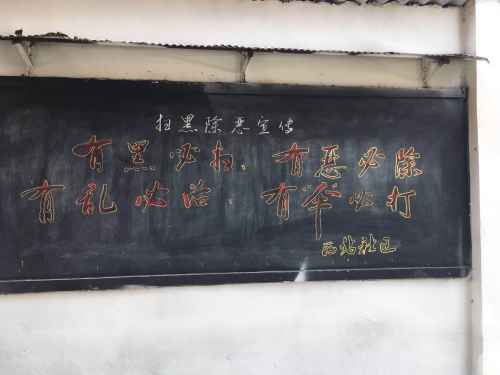 扫黑除恶宣传
有黑必扫、有恶必除
有乱必治、有伞必打
西站社区